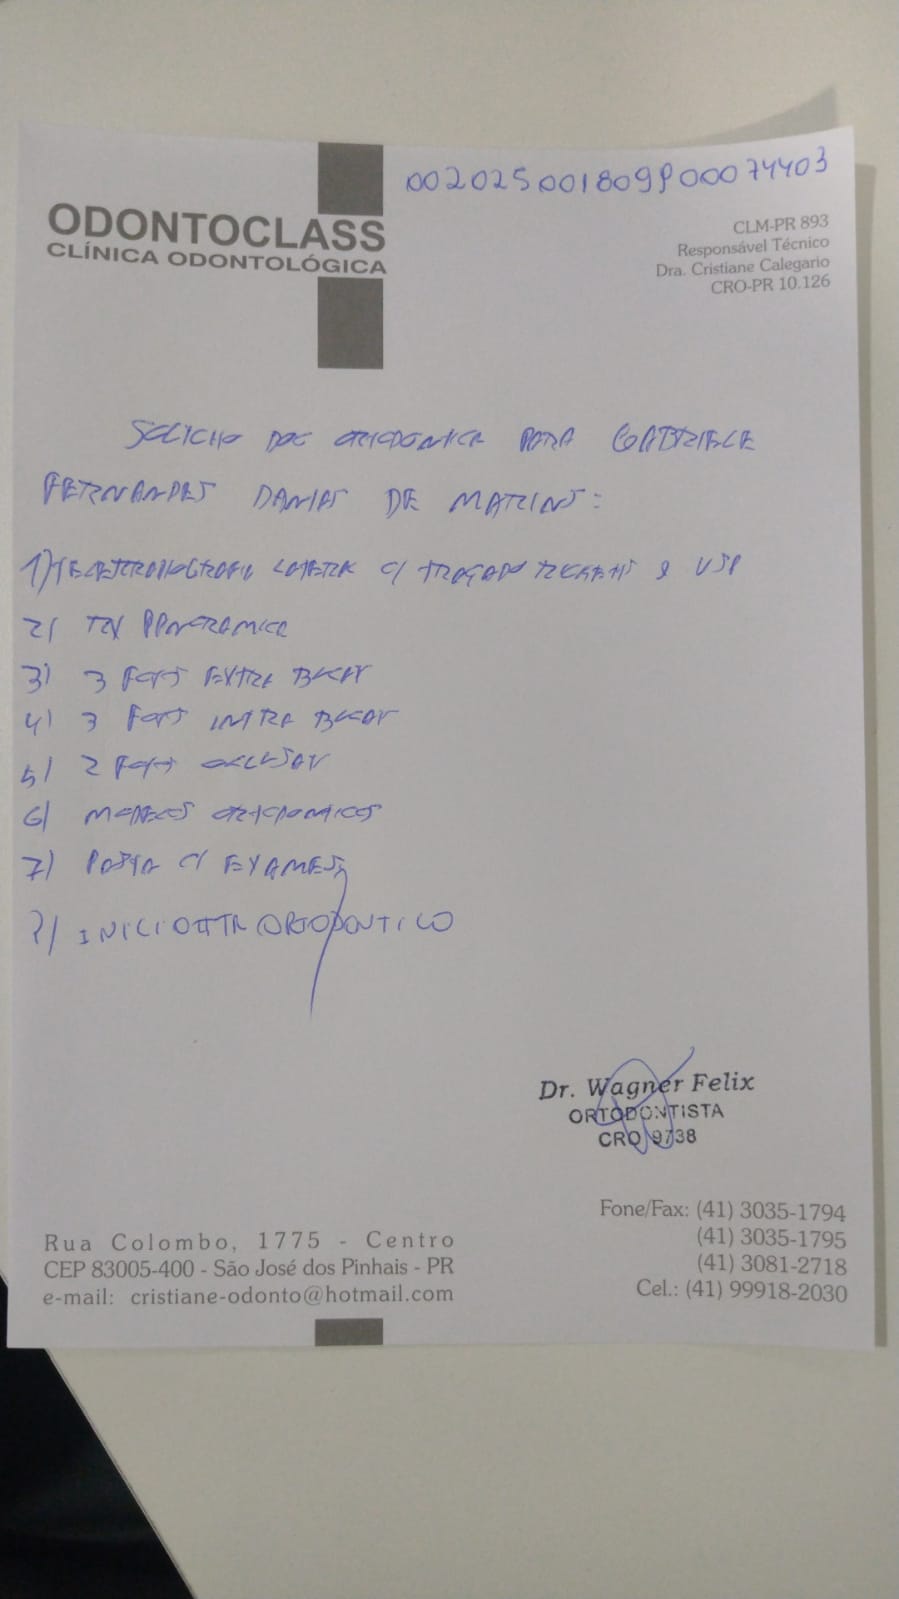 002025001809P00074403
ODONTOCLASS
CLÍNICA ODONTOLÓGICA
CLM-PR 893
Responsável Técnico
Dra. Cristiane Calegario
CRO-PR 10.126
SOLICITO DOC ORTODONTICA PARA GABRIELE
FERNANDES DE MARTINS:
1) TELERRADIOGRAFIA LATERAL C/ TRAÇADO & USP
2) RX PANORAMICA
3) 3 FOTOS EXTRA BUCAL
4) 3 FOTOS INTRA BUCAL
5) 2 FOTOS OCLUSAL
6) MODELOS ORTODONTICOS
7) PASTA C/ EXAMES
?) INICIO ORTODONTICO
Dr. Wagner Felix
ORTODONTISTA
CRO 9738
Rua Colombo, 1775 - Centro
CEP 83005-400 - São José dos Pinhais - PR
e-mail: cristiane-odonto@hotmail.com
Fone/Fax: (41) 3035-1794
(41) 3035-1795
(41) 3081-2718
Cel.: (41) 99918-2030